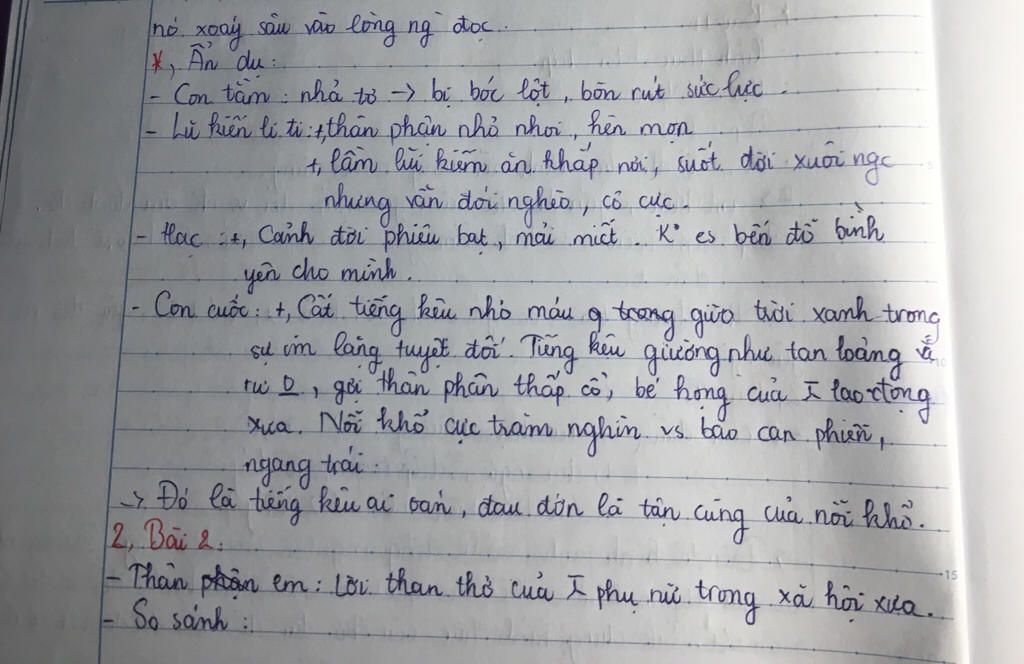 nó xoáy sâu vào lòng ng` đọc.
*, Ẩn dụ:
- Con tằm: nhả tơ -> bị bóc lột, bòn rút sức lực.
- Lũ kiến li ti: +, thân phận nhỏ nhoi, hèn mọn
+, lầm lũi kiếm ăn khắp nơi, suốt đời xuôi ngc
nhưng vẫn đói nghèo, cơ cực.
- Hạc: +, Cảnh đời phiêu bạt, mải miết. K° es bến đỗ bình
yên cho mình.
- Con cuốc: +, Cất tiếng kêu nhỏ máu g trong giữa trời xanh trong
sự im lặng tuyệt đối. Tiếng kêu giường như tan loãng
, gợi thân phận thấp cổ, bé họng của lao động
xưa. Nỗi khổ cực trăm nghìn vs bao oan phiên,
ngang trái.
-> Đó là tiếng kêu ai oán, đau đớn là tận cùng của nỗi khổ.
2, Bài 2:
- Thân phận em: Lời than thở của phụ nữ trong xã hội xưa.
- So sánh:
10
15